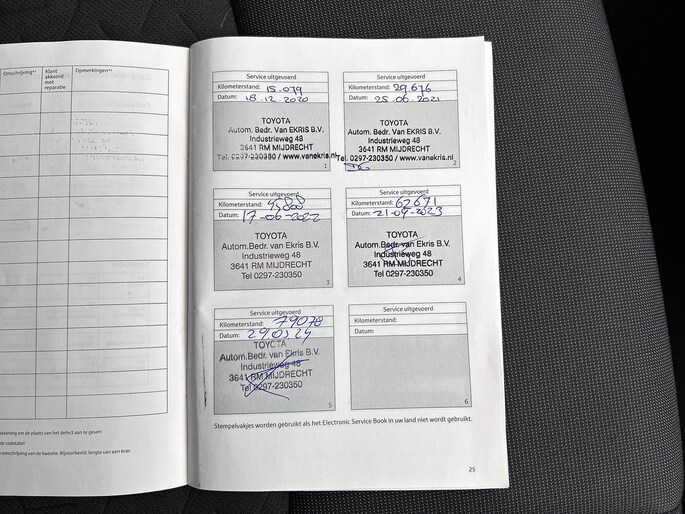 Omschrijving*¹
Klant akkoord met reparatie
Opmerkingen*²
tekening om de plaats van het defect aan te geven
de codetabel
omschrijving van de kwestie. Bijvoorbeeld: lengte van een kras
Service uitgevoerd
Kilometerstand: 15.079
Datum: 18.12.2020
TOYOTA
Autom. Bedr. Van EKRIS B.V.
Industrieweg 48
3641 RM MIJDRECHT
Tel. 0297-230350 / www.vanekris.nl
1
Service uitgevoerd
Kilometerstand: 29.676
Datum: 25.06.2021
TOYOTA
Autom. Bedr. Van EKRIS B.V.
Industrieweg 48
3641 RM MIJDRECHT
Tel. 0297-230350 / www.vanekris.nl
2
Service uitgevoerd
Kilometerstand: 45800
Datum: 17-06-2022
TOYOTA
Autom.Bedr. van Ekris B.V.
Industrieweg 48
3641 RM MIJDRECHT
Tel 0297-230350
3
Service uitgevoerd
Kilometerstand: 62671
Datum: 21-04-2023
TOYOTA
Autom.Bedr. van Ekris B.V.
Industrieweg 48
3641 RM MIJDRECHT
Tel 0297-230350
4
Service uitgevoerd
Kilometerstand: 79078
Datum: 290324
TOYOTA
Autom.Bedr. van Ekris B.V.
Industrieweg 48
3641 RM MIJDRECHT
Tel 0297-230350
5
Service uitgevoerd
Kilometerstand:
Datum:
6
Stempelvakjes worden gebruikt als het Electronic Service Book in uw land niet wordt gebruikt.
25